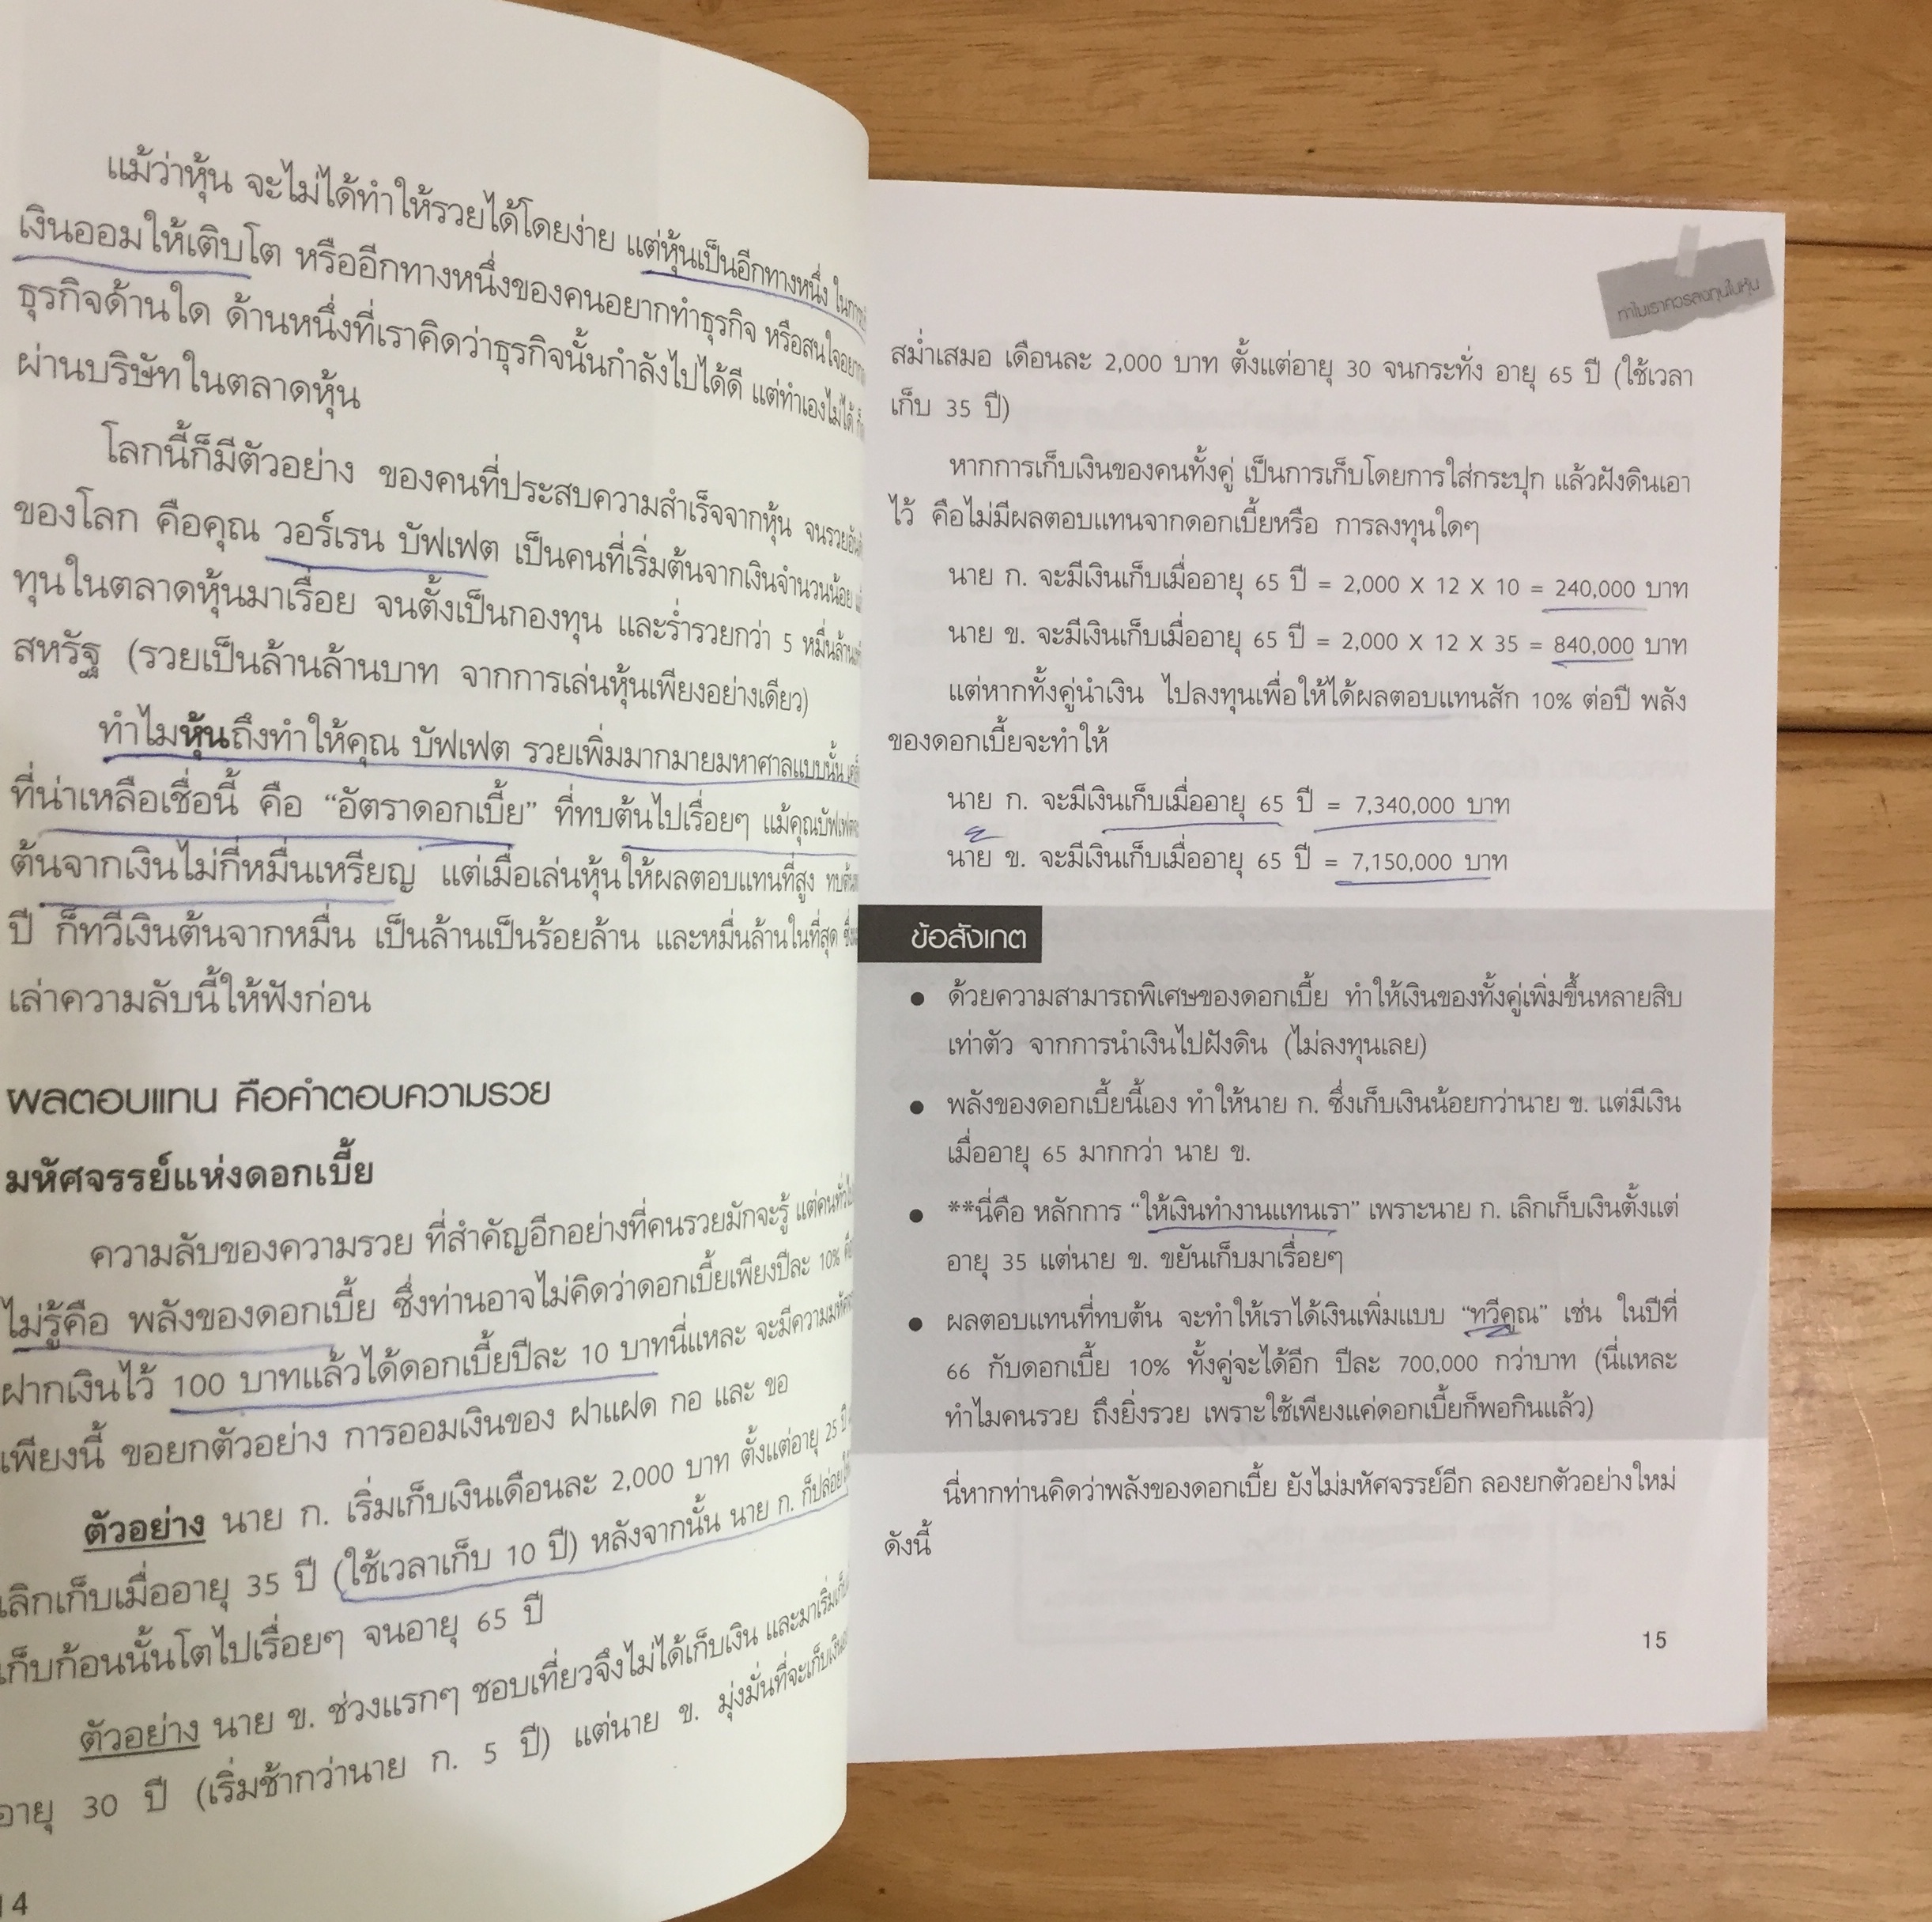 แม้ว่าหุ้น จะไม่ได้ทำให้รวยได้โดยง่าย แต่หุ้นเป็นอีกทางหนึ่ง
เงินออมให้เติบโต หรืออีกทางหนึ่งของคนอยากทำธุรกิจ หรือสนใจ
ธุรกิจด้านใด ด้านหนึ่งที่เราคิดว่าธุรกิจนั้นกำลังไปได้ดี แต่ทำเองไม่ได้
ผ่านบริษัทในตลาดหุ้น
โลกนี้ก็มีตัวอย่าง ของคนที่ประสบความสำเร็จจากหุ้น
ของโลก คือคุณ วอร์เรน บัฟเฟต เป็นคนที่เริ่มต้นจากเงินจำนวนน้อย
ทุนในตลาดหุ้นมาเรื่อย จนตั้งเป็นกองทุน และร่ำรวยกว่า 5
สหรัฐ (รวยเป็นล้านล้านบาท จากการเล่นหุ้นเพียงอย่างเดียว)
ทำไมหุ้นถึงทำให้คุณ บัฟเฟต รวยเพิ่มมากมายมหาศาลแบบนั้น
ที่น่าเหลือเชื่อนี้ คือ “อัตราดอกเบี้ย” ที่ทบต้นไปเรื่อยๆ
ต้นจากเงินไม่กี่หมื่นเหรียญ แต่เมื่อเล่นหุ้นให้ผลตอบแทนที่สูง
ปี ก็ทวีเงินต้นจากหมื่น เป็นล้านเป็นร้อยล้าน และหมื่นล้านในที่สุด
เล่าความลับนี้ให้ฟังก่อน
ผลตอบแทน คือคำตอบความรวย
มหัศจรรย์แห่งดอกเบี้ย
ความลับของความรวย ที่สำคัญอีกอย่างที่คนรวยมักจะรู้
ไม่รู้คือ พลังของดอกเบี้ย ซึ่งท่านอาจไม่คิดว่าดอกเบี้ยเพียงปีละ 10%
ฝากเงินไว้ 100 บาทแล้วได้ดอกเบี้ยปีละ 10 บาทนี่แหละ
เพียงนี้ ขอยกตัวอย่าง การออมเงินของ ฝาแฝด กอ และ ขอ
ตัวอย่าง นาย ก. เริ่มเก็บเงินเดือนละ 2,000 บาท ตั้งแต่อายุ 25 ปี
เลิกเก็บเมื่ออายุ 35 ปี (ใช้เวลาเก็บ 10 ปี) หลังจากนั้น นาย ก. ก็ปล่อย
เก็บก้อนนั้นโตไปเรื่อยๆ จนอายุ 65 ปี
ตัวอย่าง นาย ข. ช่วงแรกๆ ชอบเที่ยวจึงไม่ได้เก็บเงิน
อายุ 30 ปี (เริ่มช้ากว่านาย ก. 5 ปี) แต่นาย ข. มุ่งมั่นที่จะเก็บเงิน
14
ทำไมเราควรลงทุนในหุ้น
สม่ำเสมอ เดือนละ 2,000 บาท ตั้งแต่อายุ 30 จนกระทั่ง อายุ 65 ปี (ใช้เวลา
เก็บ 35 ปี)
หากการเก็บเงินของคนทั้งคู่ เป็นการเก็บโดยการใส่กระปุก แล้วฝังดินเอา
ไว้ คือไม่มีผลตอบแทนจากดอกเบี้ยหรือ การลงทุนใดๆ
นาย ก. จะมีเงินเก็บเมื่ออายุ 65 ปี = 2,000 X 12 X 10 = 240,000 บาท
นาย ข. จะมีเงินเก็บเมื่ออายุ 65 ปี = 2,000 X 12 X 35 = 840,000 บาท
แต่หากทั้งคู่นำเงิน ไปลงทุนเพื่อให้ได้ผลตอบแทนสัก 10% ต่อปี พลัง
ของดอกเบี้ยจะทำให้
นาย ก. จะมีเงินเก็บเมื่ออายุ 65 ปี = 7,340,000 บาท
นาย ข. จะมีเงินเก็บเมื่ออายุ 65 ปี = 7,150,000 บาท
ข้อสังเกต
● ด้วยความสามารถพิเศษของดอกเบี้ย ทำให้เงินของทั้งคู่เพิ่มขึ้นหลายสิบ
เท่าตัว จากการนำเงินไปฝังดิน (ไม่ลงทุนเลย)
● พลังของดอกเบี้ยนี้เอง ทำให้นาย ก. ซึ่งเก็บเงินน้อยกว่านาย ข. แต่มีเงิน
เมื่ออายุ 65 มากกว่า นาย ข.
● **นี่คือ หลักการ “ให้เงินทำงานแทนเรา” เพราะนาย ก. เลิกเก็บเงินตั้งแต่
อายุ 35 แต่นาย ข. ขยันเก็บมาเรื่อยๆ
● ผลตอบแทนที่ทบต้น จะทำให้เราได้เงินเพิ่มแบบ “ทวีคูณ” เช่น ในปีที่
66 กับดอกเบี้ย 10% ทั้งคู่จะได้อีก ปีละ 700,000 กว่าบาท (นี่แหละ
ทำไมคนรวย ถึงยิ่งรวย เพราะใช้เพียงแค่ดอกเบี้ยก็พอกินแล้ว)
นี่หากท่านคิดว่าพลังของดอกเบี้ย ยังไม่มหัศจรรย์อีก ลองยกตัวอย่างใหม่
ดังนี้
15